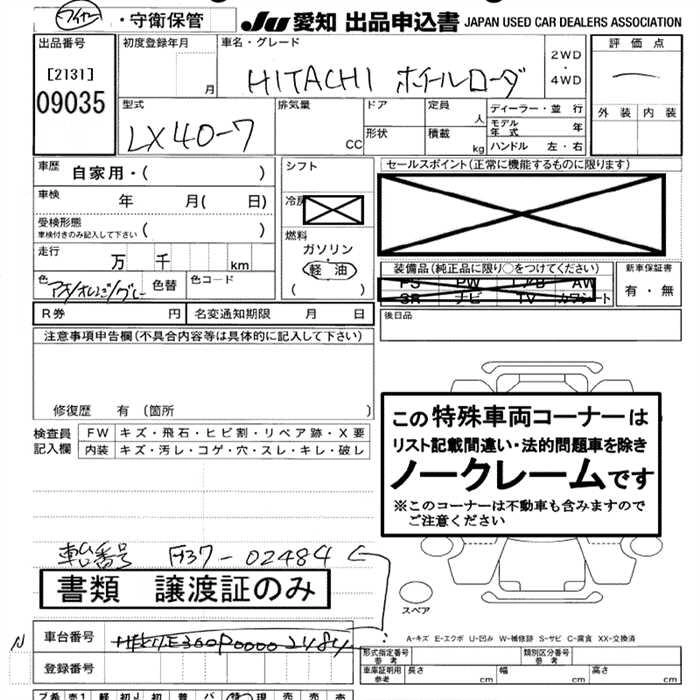 ワイヤー ・守衛保管 JU 愛知 出品申込書 JAPAN USED CAR DEALERS ASSOCIATION
出品番号 初度登録年月 車名・グレード 2WD・4WD 評価点
[2131]
09035 月 HITACHI ホイールローダ
型式 排気量 ドア 定員 人 ディーラー・並行 外装 内装
LX40-7 CC 形状 積載 kg モデル年式 年
ハンドル 左・右
車歴 自家用・( ) シフト セールスポイント(正常に機能するものに限ります)
車検 年 月( 日) 冷房
受検形態 ( )
車検付きのみ記入して下さい
燃料
走行 万 千 km ガソリン・軽油
( )
装備品(純正品に限り○をつけてください) 新車保証書
PS PW エアB AW 有・無
SR ナビ TV カワシート
色 アオ/オレンジ/グレー 色替 色コード
R券 円 名変通知期限 月 日 後日品
注意事項申告欄(不具合内容等は具体的に記入して下さい)
修復歴 有 (箇所 )
検査員記入欄 FW キズ・飛石・ヒビ割・リペア跡・X要
内装 キズ・汚レ・コゲ・穴・スレ・キレ・破レ
この特殊車両コーナーは
リスト記載間違い・法的問題車を除き
ノークレームです
※このコーナーは不動車も含みますので
ご注意ください
車台番号 FH37-02484
書類 譲渡証のみ
スペア
A-キズ E-エクボ U-凹み W-補修跡 S-サビ C-腐食 XX-交換済
N 車台番号
登録番号
形式指定番号 参考 類別区分番号 参考
車庫証明用 参考 長さ cm 幅 cm 高さ cm